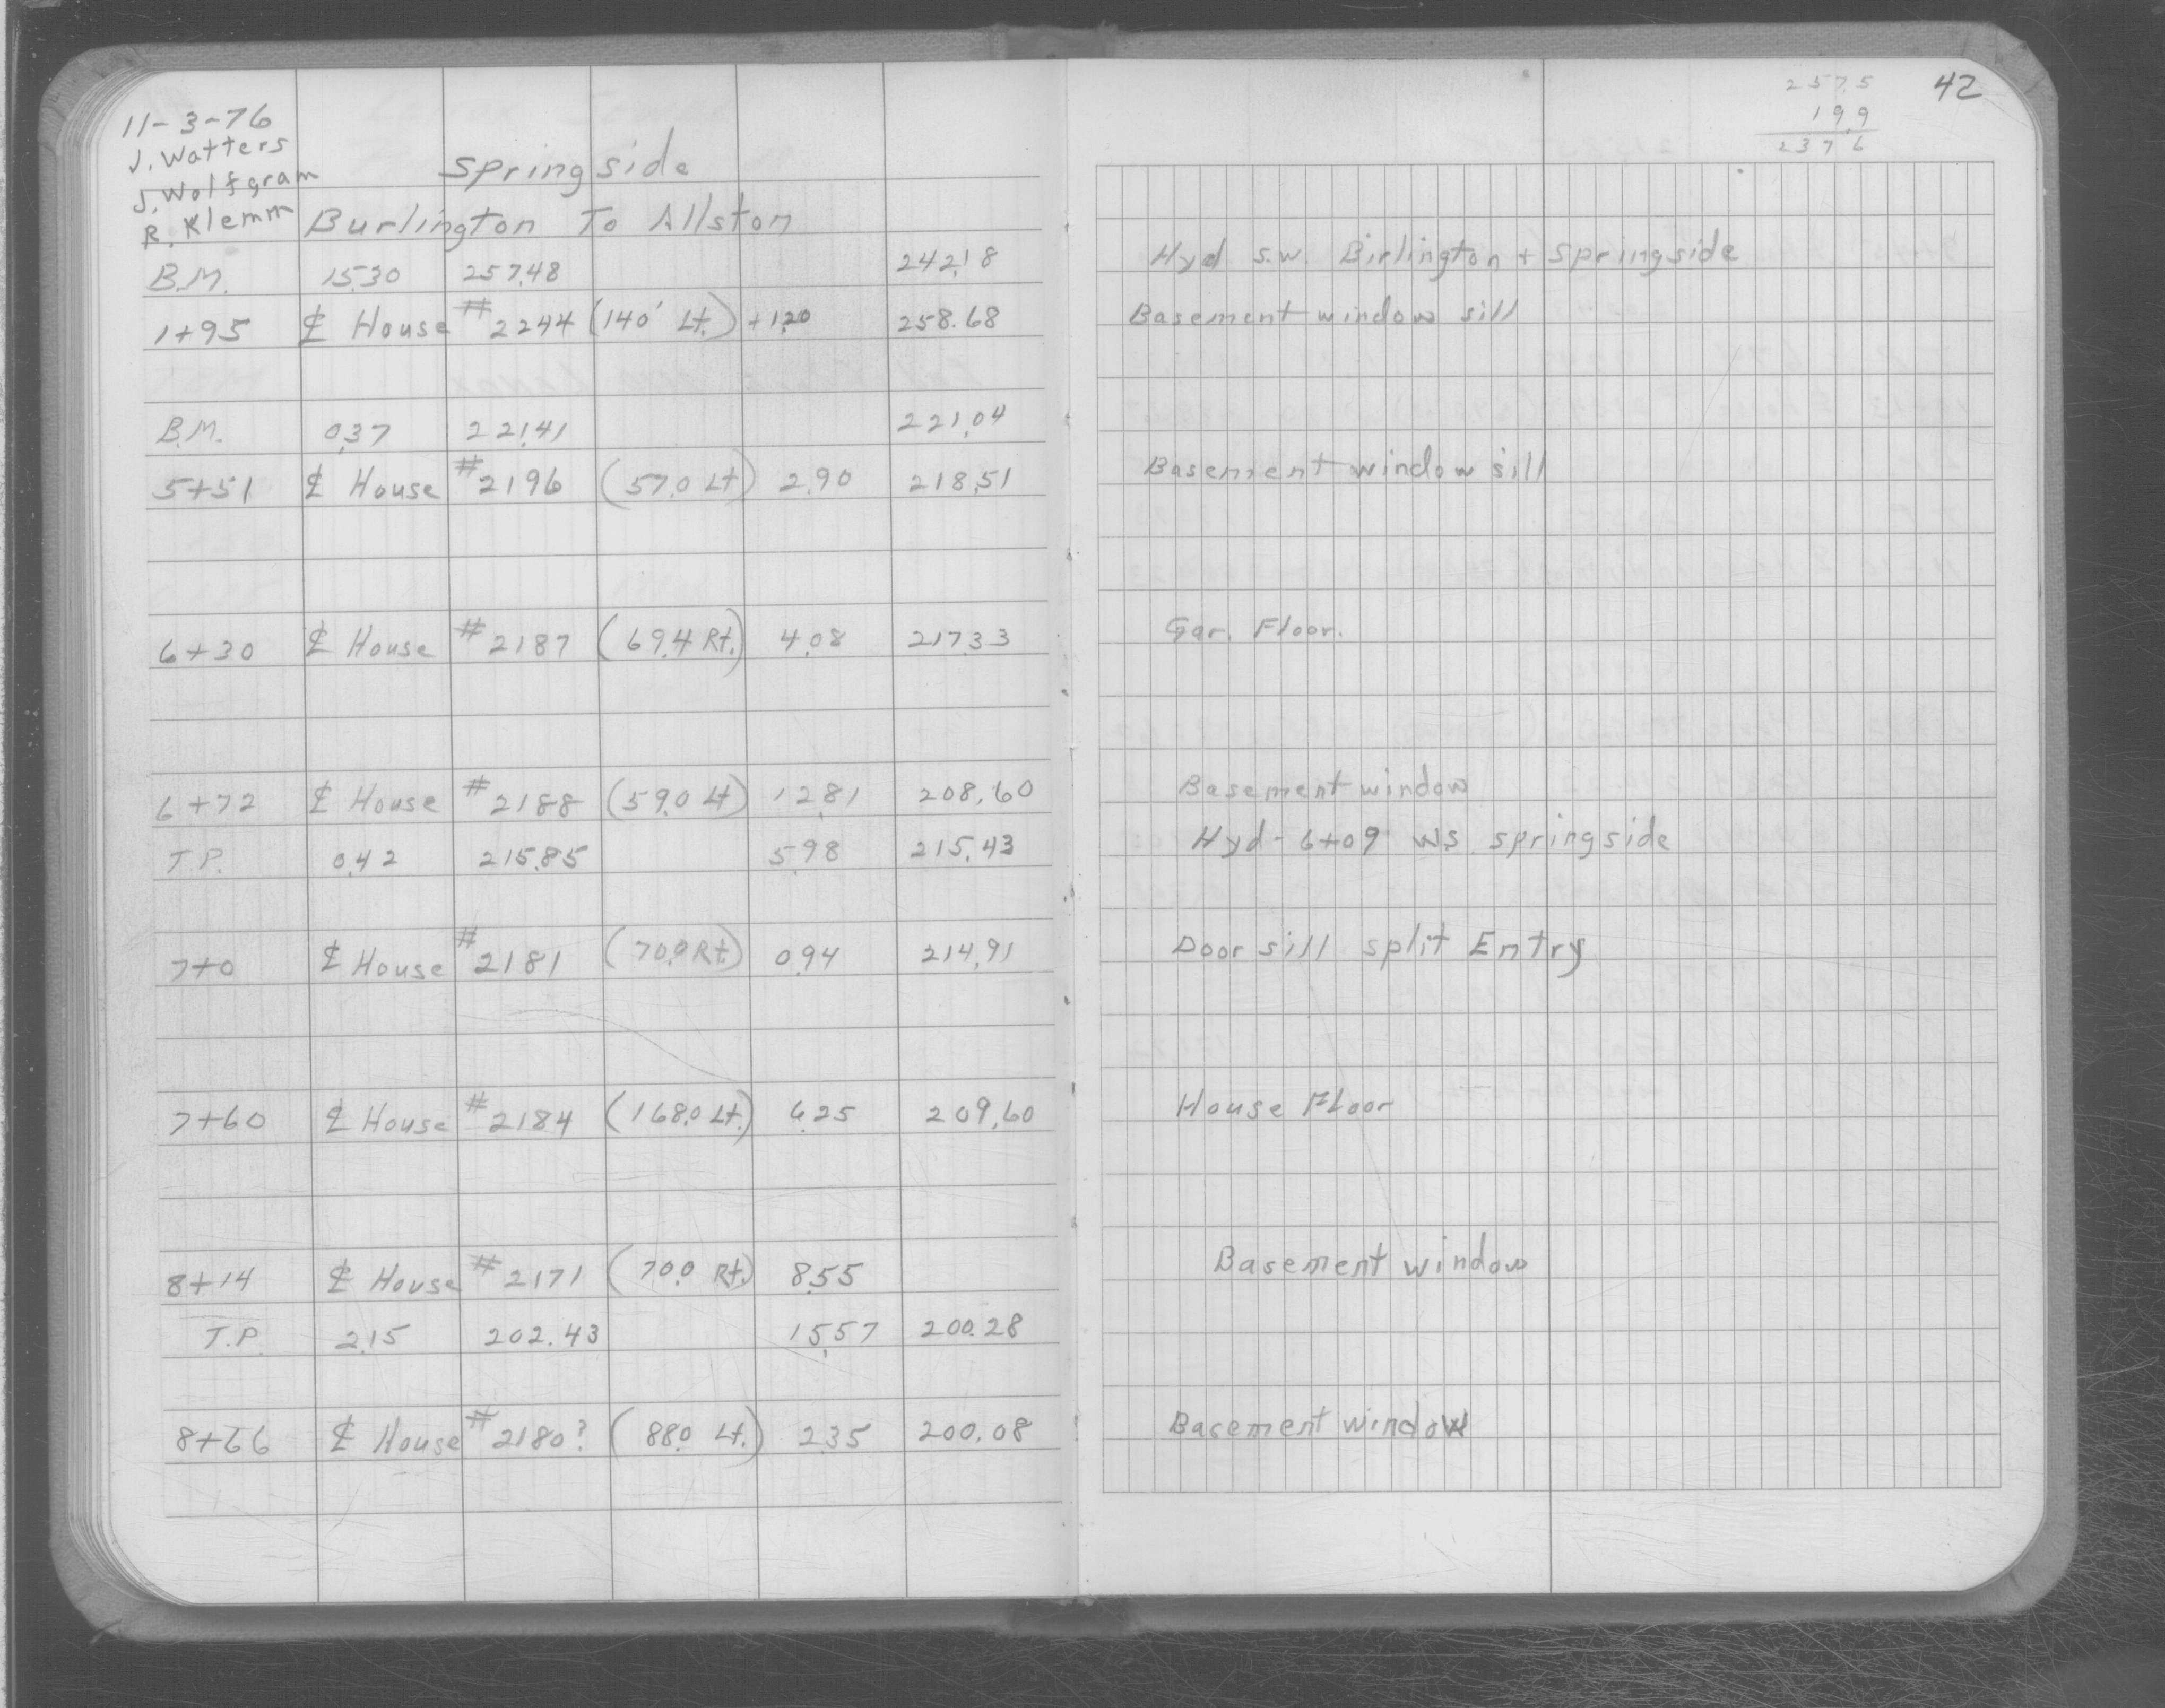 11-3-76
J. Watters
J. Wolfgram
R. Klemm
Springside
Burlington To Allston
B.M. 15.30 257.48 242.18
1+95 ℄ House #2244 (140' Lt.) +1.20 258.68
B.M. 0.37 221.41 221.04
5+51 ℄ House #2196 (57.0 Lt) 2.90 218.51
6+30 ℄ House #2187 (69.4 Rt.) 4.08 217.33
6+72 ℄ House #2188 (59.0 Lt) 12.81 208.60
T.P. 0.42 215.85 5.98 215.43
7+0 ℄ House #2181 (70.0 Rt) 0.94 214.91
7+60 ℄ House #2184 (168.0 Lt.) 6.25 209.60
8+14 ℄ House #2171 (70.0 Rt.) 8.55
T.P. 2.15 202.43 15.57 200.28
8+66 ℄ House #2180? (88.0 Lt.) 2.35 200.08
42
257.5
19.9
237.6
Hyd S.W. Birlington + Springside
Basement window sill
Basement window sill
Gar. Floor.
Basement window
Hyd - 6+09 W.S. Springside
Door sill split Entry
House Floor
Basement window
Basement window